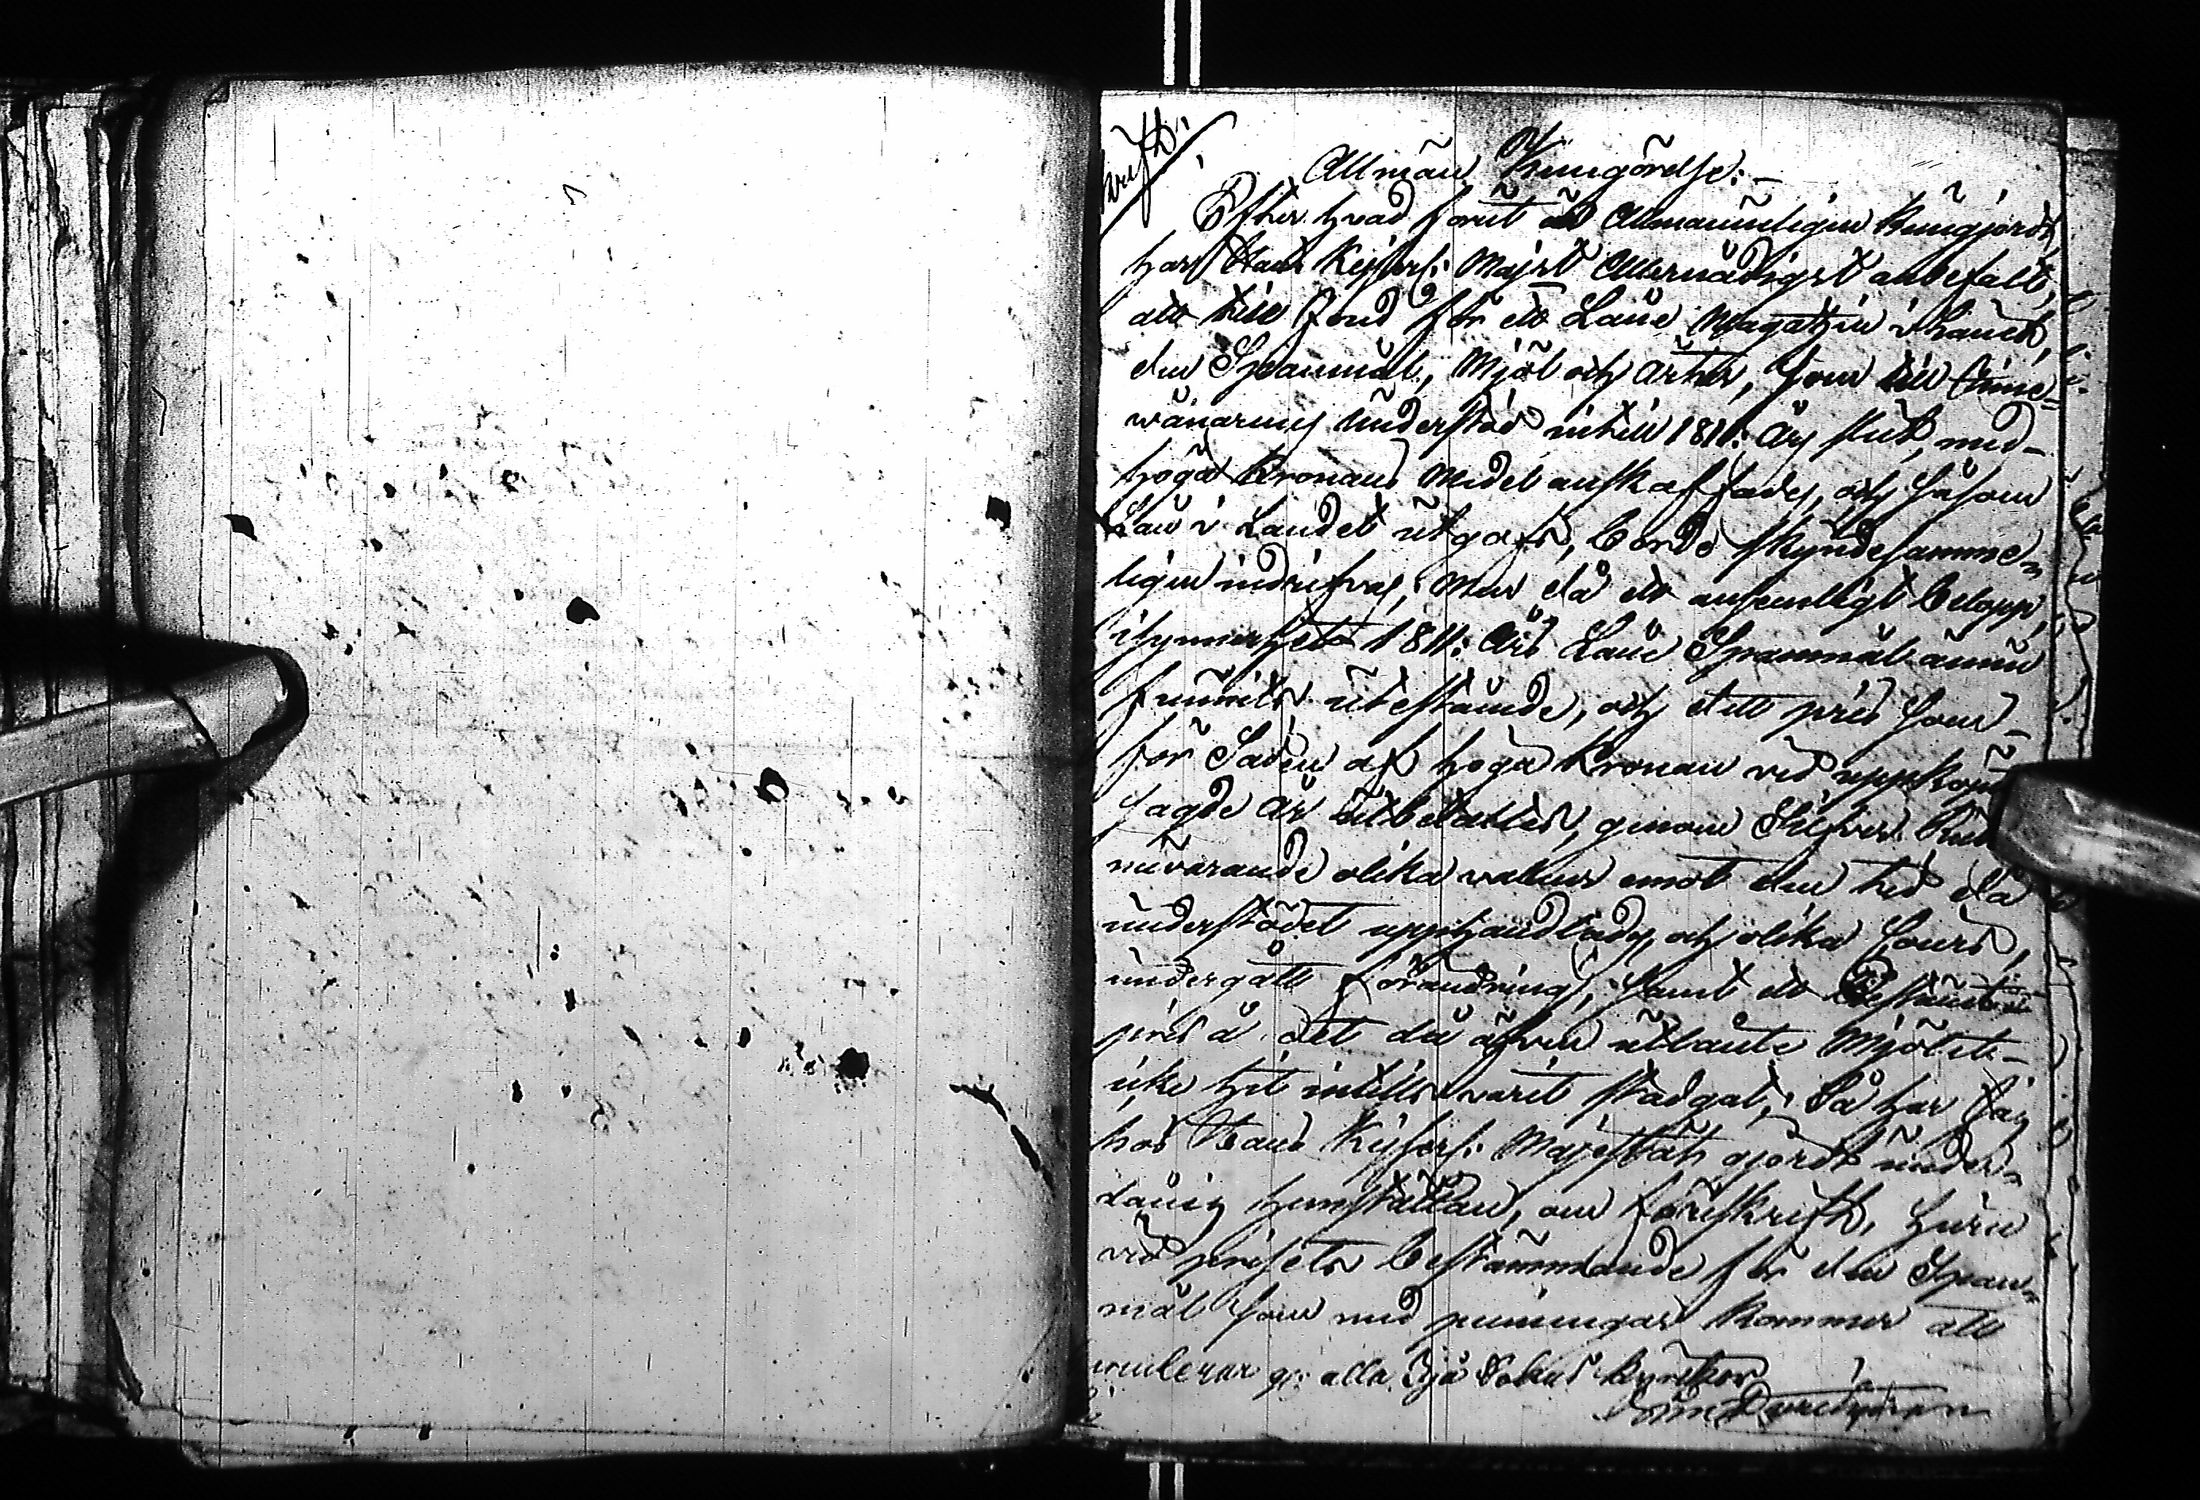 Allmän Kungörelse:
Efter hvad förut är Allmänneligen kungjordt,
har Hans Keijserl: Majst Allernådigst anbefalt,
att till fond för ett Låne Magatzin i Länet,
den Spanmål, Mjöl och Ärter, som till Inne-
vånarnes understöd intill 1811: Års slut, med
höga Kronans Medel anskaffades, och såsom
Lån i Landet utgofs, borde skyndesamme-
ligen indrifvas; Men då ett ansenlligt belopp,
isynnerhet 1811: Års Låne Spanmål ännu
funnits utestående, och dett pris som
för Säden af höga Kronan vid uppköpet
sagde År utbetaltes, genom Silfver
nuvarande olika valeur emot den tid då
understödet upphandlades, och olika Cours,
undergått förändring, samt ett Bestämt
pris å det då äfven utlånte Mjölet
icke hit intills varit stadgat; Så har Jag
hos Hans Kejserl: Majestät gjordt under-
dånig hemställan, om föreskrift, huru
vid prisets bestämmande för den Span-
mål som med penningar kommer att
alla Sokns kyrckor